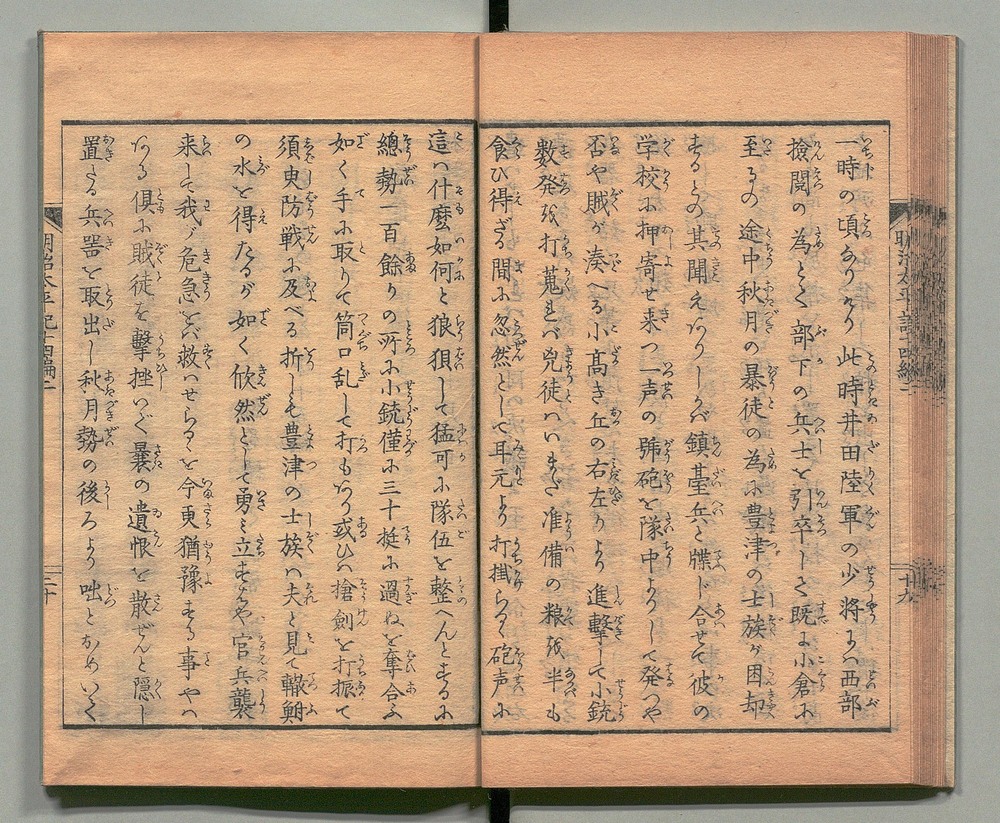 一時の頃なりけり此時井田陸軍の少将には西部
撿閲の為とて部下の兵士を引卒しと既に小倉に
至るの途中秋月の暴徒の為に豊津の士族が困却
するとの其聞えありしかば鎮臺兵と牒じ合せて彼の
学校に押寄せ来つ一声の号砲を隊中よりして発つや
否や賊が湊へる小高き丘の右左りより進撃して小銃
数発を打蒐れば兇徒はいまだ准備の粮を半も
食ひ得ざる間に忽然として耳元より打掛らるゝ砲声に
這は什麼如何と狼狽して猛可に隊伍を整へんとするに
總勢二百餘りの所に小銃僅に三十挺に過ねを奪合ふ
如く手に取りて筒口乱して打もあり或ひは搶劍を打振て
須臾防戦に及べる折しも豊津の士族は夫と見て轍鮒
の水を得たるが如く欣然として勇み立すはや官兵襲
来して我が危急をば救はせらるゝを今更猶豫する事やは
ある倶に賊徒を撃挫いで曩の遺恨を散ぜんと隠し
置たる兵器を取出し秋月勢の後ろより咄とおめいて
明治太平記十四編二
廿九
明治太平記十四編二
三十